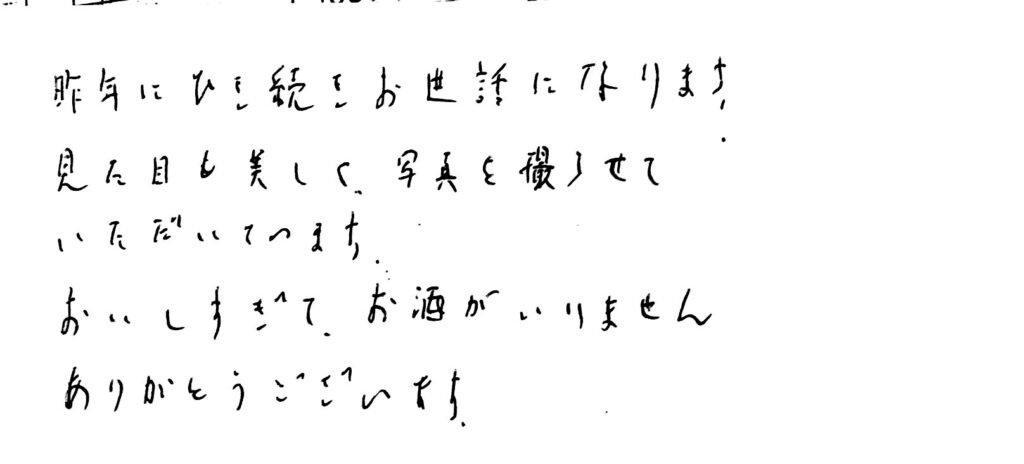 昨年にひき続きお世話になります.
見た目も美しく、写真を撮らせて
いただいています.
おいしすぎて、お酒がいりません
ありがとうございます.